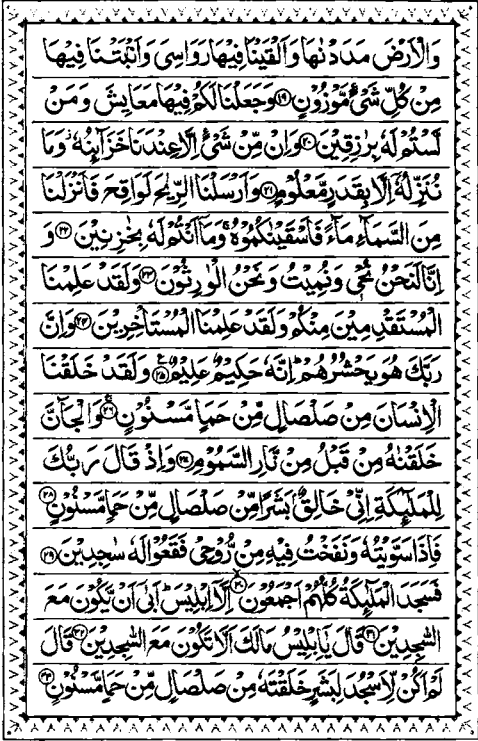 وَالْاَرْضَ مَدَدْنٰهَا وَاَلْقَيْنَا فِيْهَا رَوَاسِىَ وَاَنْۢبَتْنَا فِيْهَا
مِنْ كُلِّ شَىْءٍ مَّوْزُوْنٍ ﴿۱۹﴾ وَجَعَلْنَا لَكُمْ فِيْهَا مَعَايِشَ وَمَنْ
لَّسْتُمْ لَهٗ بِرٰزِقِيْنَ ﴿۲۰﴾ وَاِنْ مِّنْ شَىْءٍ اِلَّا عِنْدَنَا خَزَآئِنُهٗ وَمَا
نُنَزِّلُهٗۤ اِلَّا بِقَدَرٍ مَّعْلُوْمٍ ﴿۲۱﴾ وَاَرْسَلْنَا الرِّيٰحَ لَوَاقِحَ فَاَنْزَلْنَا
مِنَ السَّمَآءِ مَآءً فَاَسْقَيْنٰكُمُوْهُ وَمَاۤ اَنْتُمْ لَهٗ بِخٰزِنِيْنَ ﴿۲۲﴾ وَ
اِنَّا لَنَحْنُ نُحْىٖ وَنُمِيْتُ وَنَحْنُ الْوٰرِثُوْنَ ﴿۲۳﴾ وَلَقَدْ عَلِمْنَا
الْمُسْتَقْدِمِيْنَ مِنْكُمْ وَلَقَدْ عَلِمْنَا الْمُسْتَاْخِرِيْنَ ﴿۲۴﴾ وَاِنَّ
رَبَّكَ هُوَ يَحْشُرُهُمْ ؕ اِنَّهٗ حَكِيْمٌ عَلِيْمٌ ﴿۲۵﴾ وَلَقَدْ خَلَقْنَا
الْاِنْسَانَ مِنْ صَلْصَالٍ مِّنْ حَمَاٍ مَّسْنُوْنٍ ﴿۲۶﴾ وَالْجَآنَّ
خَلَقْنٰهُ مِنْ قَبْلُ مِنْ نَّارِ السَّمُوْمِ ﴿۲۷﴾ وَاِذْ قَالَ رَبُّكَ
لِلْمَلٰٓئِكَةِ اِنِّىْ خَالِقٌۢ بَشَرًا مِّنْ صَلْصَالٍ مِّنْ حَمَاٍ مَّسْنُوْنٍ ﴿۲۸﴾
فَاِذَا سَوَّيْتُهٗ وَنَفَخْتُ فِيْهِ مِنْ رُّوْحِىْ فَقَعُوْا لَهٗ سٰجِدِيْنَ ﴿۲۹﴾
فَسَجَدَ الْمَلٰٓئِكَةُ كُلُّهُمْ اَجْمَعُوْنَ ﴿۳۰﴾ اِلَّاۤ اِبْلِيْسَ ؕ اَبٰٓى اَنْ يَّكُوْنَ مَعَ
السّٰجِدِيْنَ ﴿۳۱﴾ قَالَ يٰۤاِبْلِيْسُ مَالَكَ اَلَّا تَكُوْنَ مَعَ السّٰجِدِيْنَ ﴿۳۲﴾ قَالَ
لَمْ اَكُنْ لِّاَسْجُدَ لِبَشَرٍ خَلَقْتَهٗ مِنْ صَلْصَالٍ مِّنْ حَمَاٍ مَّسْنُوْنٍ ﴿۳۳﴾